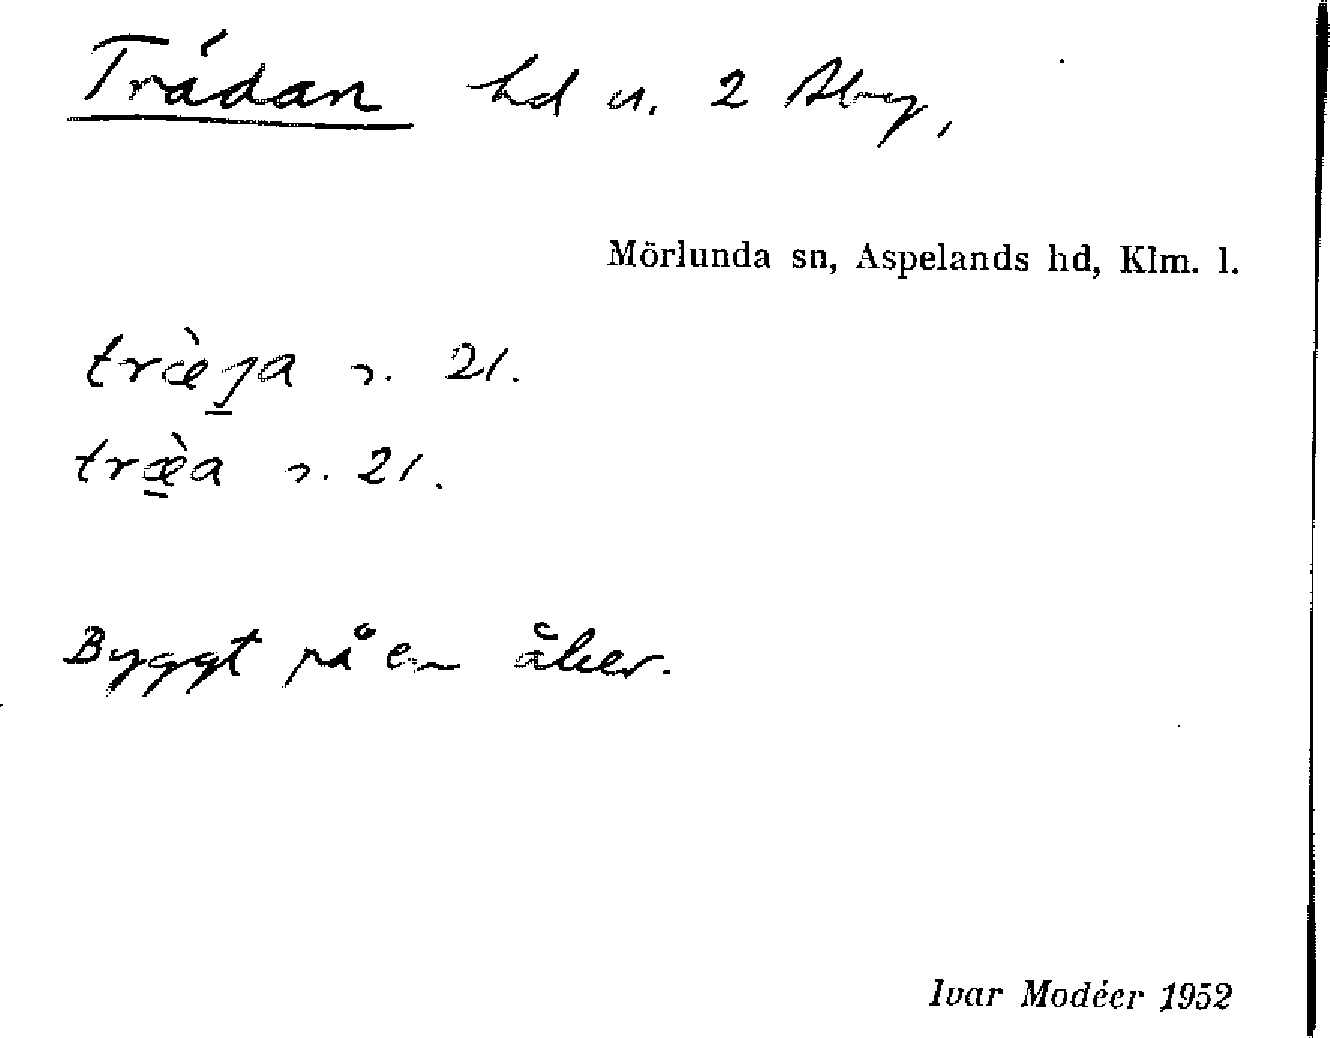 Trädan hd u. 2 Åby,
Mörlunda sn, Aspelands hd, Klm. l.
træ̀ja r. 21.
træ̀a r. 21.
Byggt på en åker.
Ivar Modéer 1952